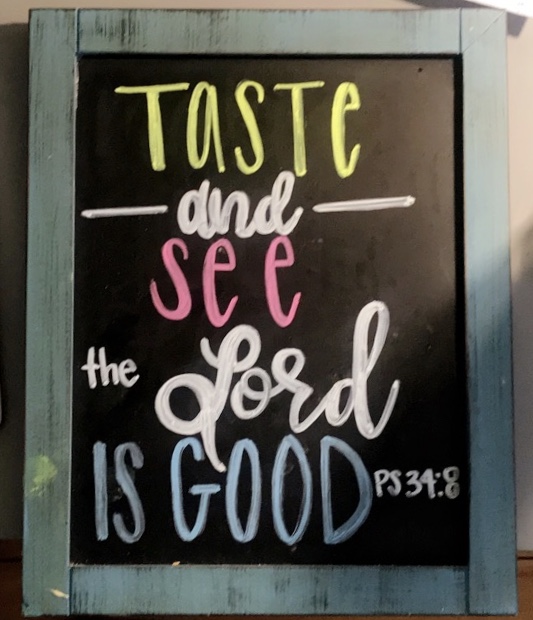 TasTe
and
see
the Lord
IS GOOD PS 34:8